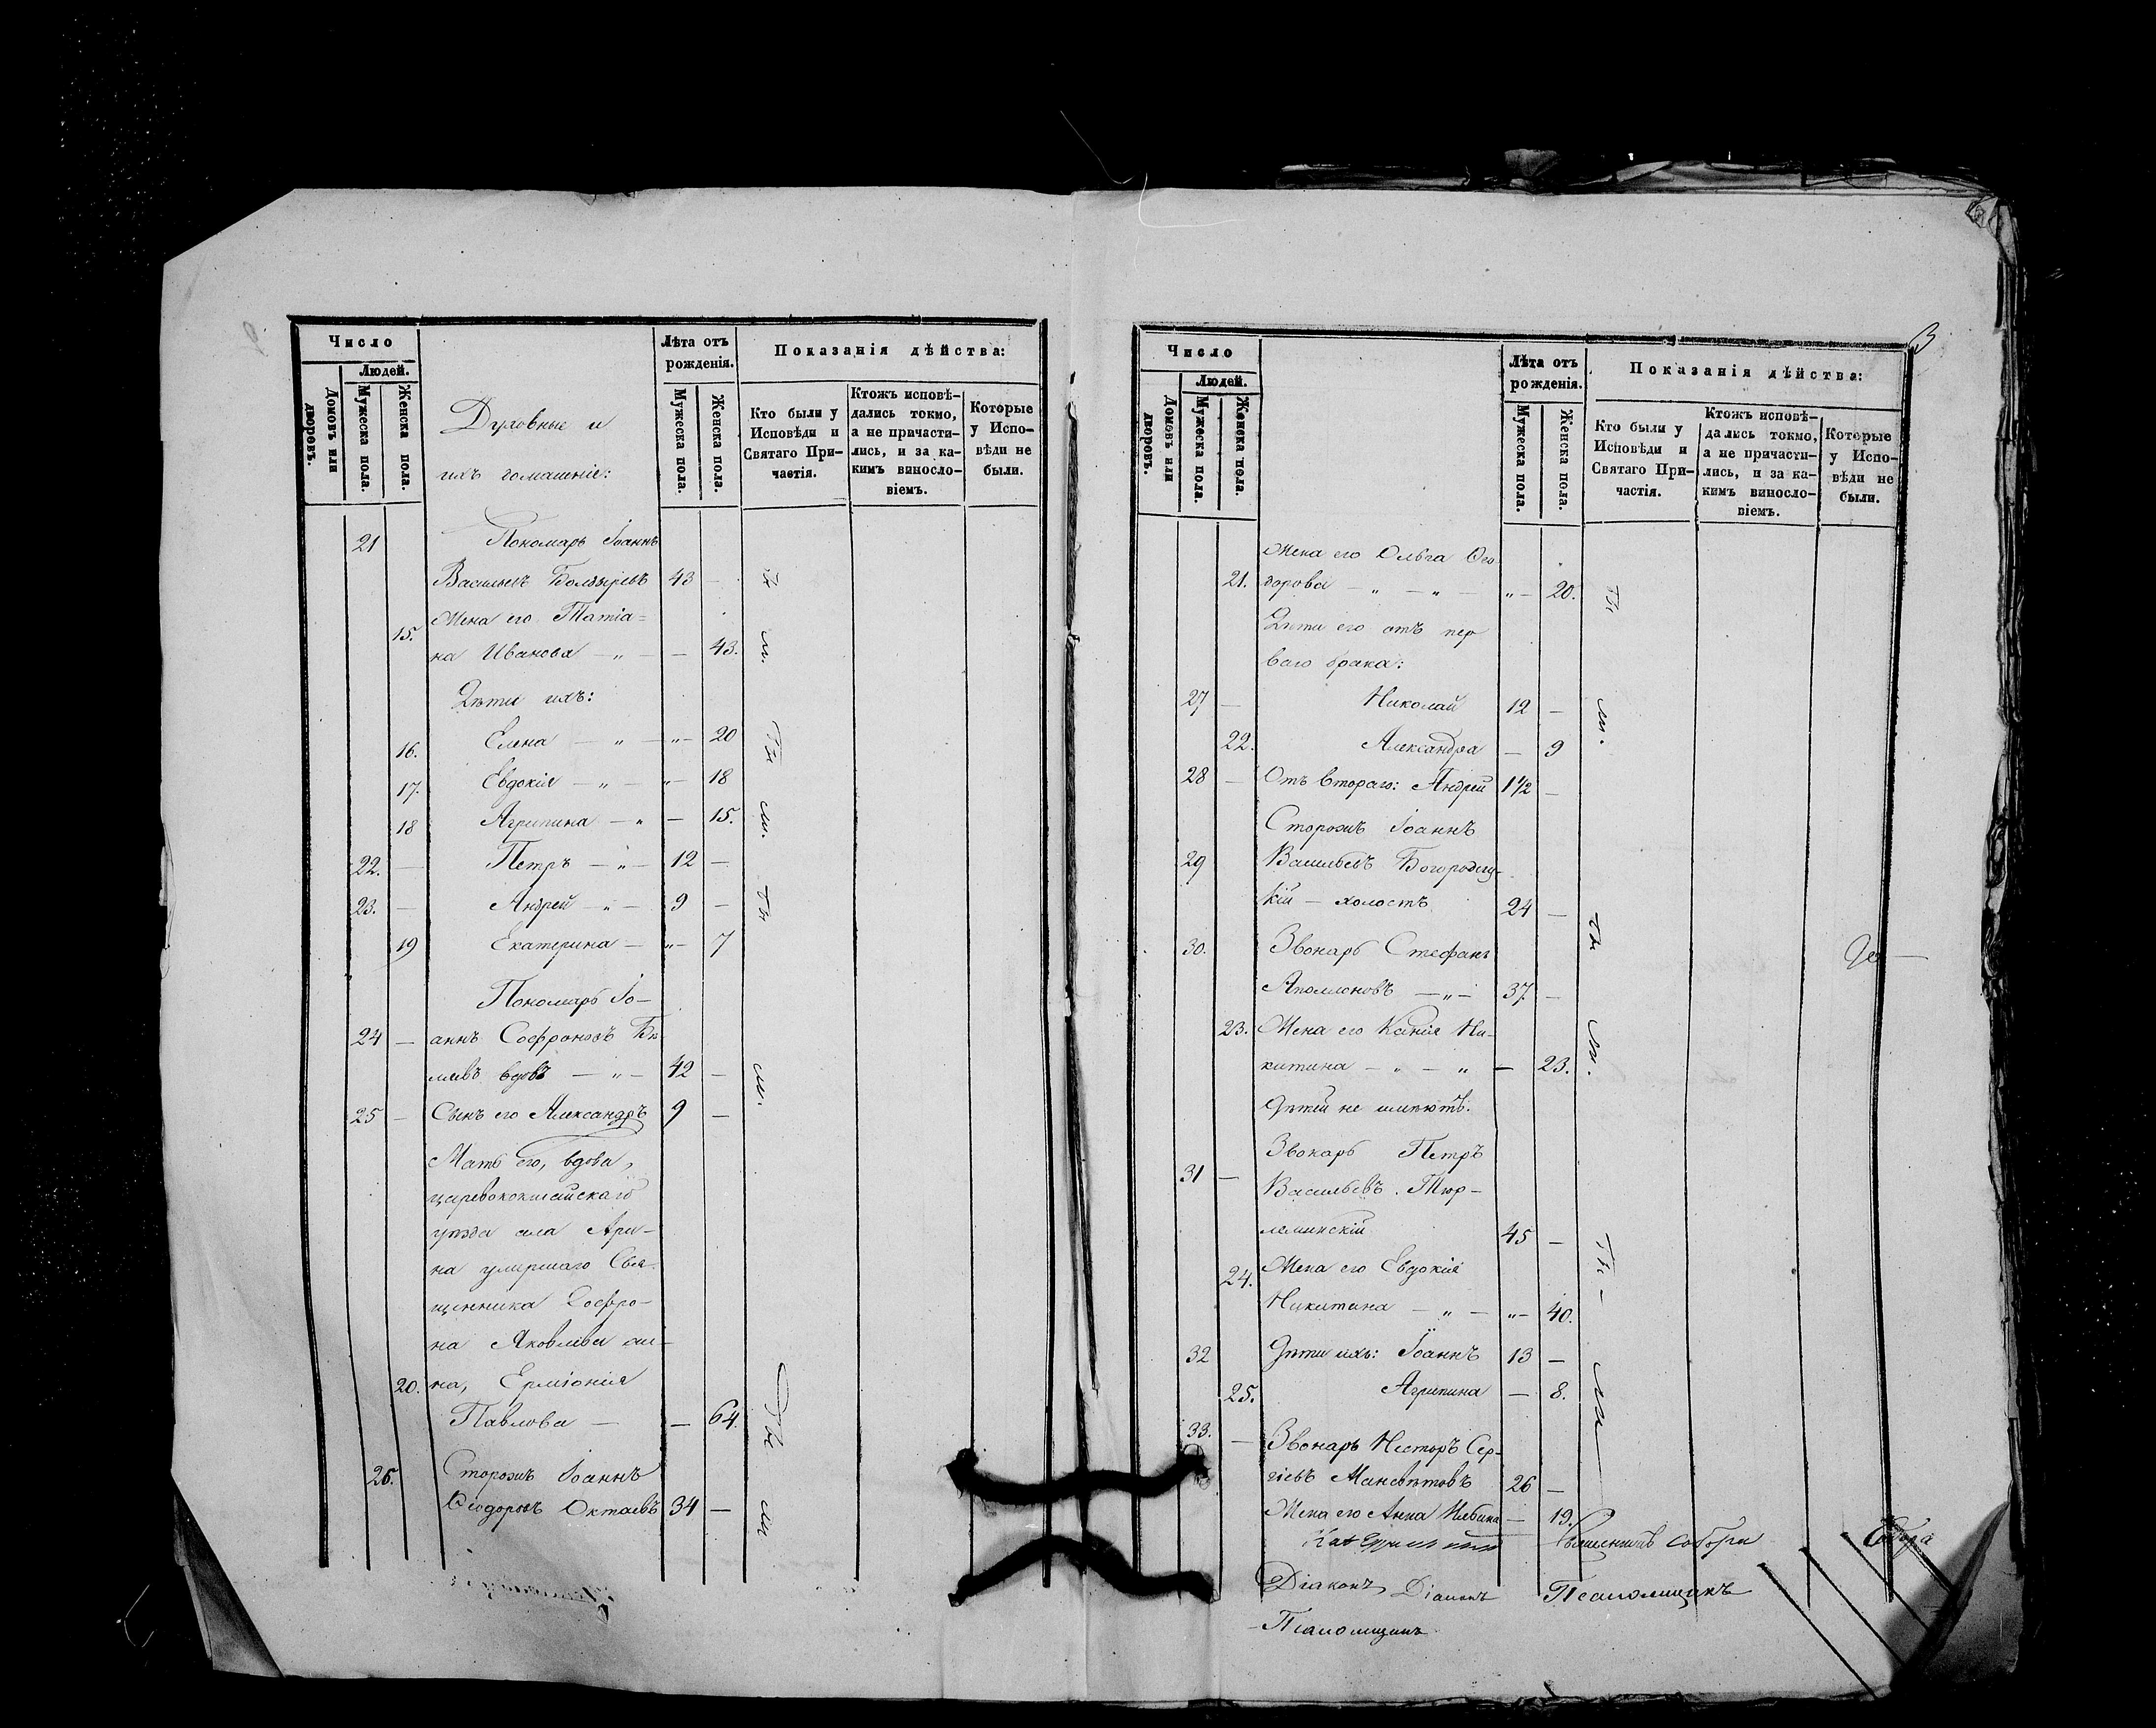 Число
Людей.
Домовъ или дворовъ.
Мужеска пола.
Женска пола.
Духовные и
ихъ домашніе:
Лѣта отъ рожденія.
Мужеска пола.
Женска пола.
Показанія дѣйства:
Кто были у Исповѣди и Святаго Причастія.
Ктожъ исповѣдались токмо, а не причастились, и за какимъ винословіемъ.
Которые у Исповѣди не были.
21 Пономарь Іоаннъ
Васильевъ Болдыревъ 43 —
15. Жена его Татіа=
на Иванова — „ — — 43.
Дѣти ихъ:
16. Елена — „ — „ — 20
17. Евдокія — „ — „ — 18
18 Агрипина — „ — 15.
22. — Петръ — „ — 12 —
23. — Андрей — „ — 9 —
19 Екатерина — „ — 7
Пономарь Іо—
24 — аннъ Софроновъ
вдовъ — „ — 42 —
25 — Сынъ его Александръ 9 —
Мать его, вдова,
царевококшайскаго
уѣзда села Ари—
на умершаго Свя
щенника Софро—
на Яковлева
20. на, Ерміонія
Павлова — — 64.
26. Сторожъ Іоаннъ
Ѳеодоровъ Октаевъ 34 —
бы
ли.
бы
ли.
бы
ли.
бы
ли
3
Число
Людей.
Домовъ или дворовъ.
Мужеска пола.
Женска пола.
Лѣта отъ рожденія.
Мужеска пола.
Женска пола.
Показанія дѣйства:
Кто были у Исповѣди и Святаго Причастія.
Ктожъ исповѣдались токмо, а не причастились, и за какимъ винословіемъ.
Которые у Исповѣди не были.
Жена его Ольга Ѳео
21. дорова — „ — „ — „ — 20.
Дѣти его отъ пер
ваго брака:
27 — Николай 12 —
22. Александра — 9
28 — Отъ втораго: Андрей 1 1/2 —
Сторожъ Іоаннъ
29 Васильевъ Богородиц-
кій — холостъ 24 —
30. Звонарь Стефанъ
Аполлоновъ — „ — 37 —
23. Жена его Ксенія Ни-
китина — „ — „ — 23.
Дѣтей не имѣютъ.
Звонарь Петръ
31 — Васильевъ Тюр-
леминскій 45 —
24. Жена его Евдокія
Никитина — „ — „ — 40.
32 Дѣти ихъ: Іоаннъ 13 —
25. Агрипина — 8.
33. — Звонарь Несторъ Сер-
гіевъ Мансветовъ 26 —
Жена его Анна Ильина — 19.
бы
ли.
бы
ли.
бы —
ли
собора
Діаконъ Діаконъ Псаломщикъ
Псаломщикъ